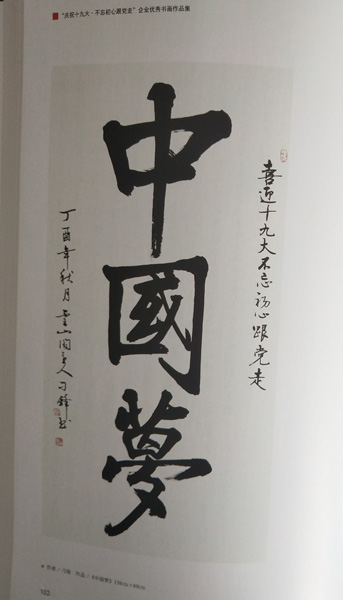 "庆祝十九大·不忘初心跟党走"企业优秀书画作品集
喜迎十九大不忘初心跟党走
中國夢
丁酉年秋月
102